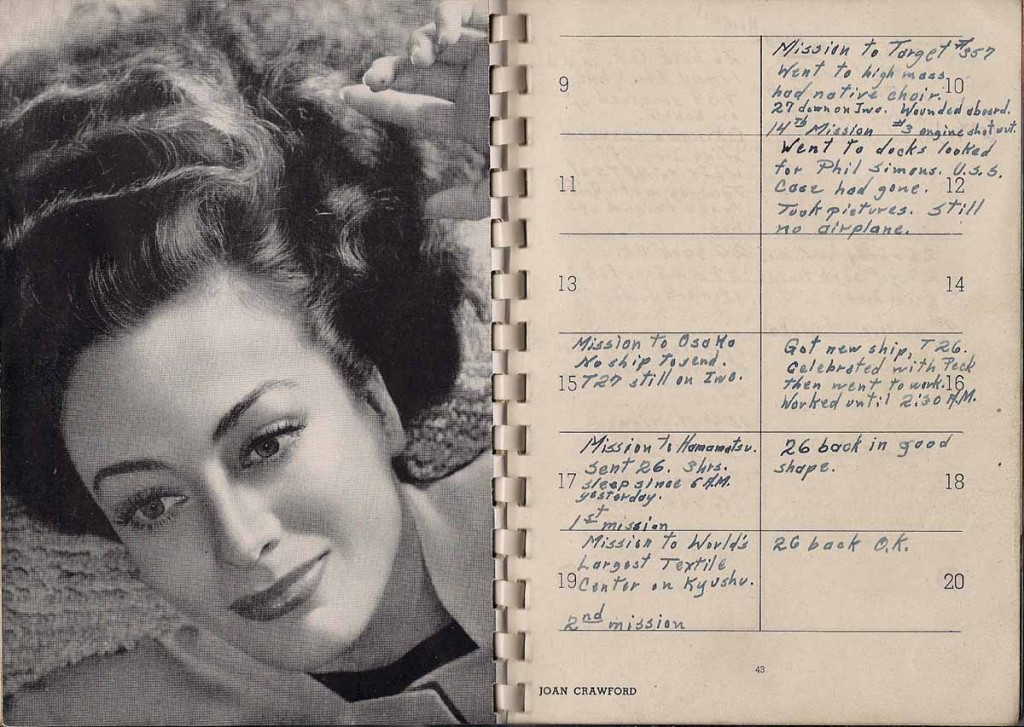 9
Mission to Target #357
Went to high mass,
had native choir.
10
27 down on Iwo. Wounded aboard.
14th Mission #3 engine shot out.
11
Went to docks looked
for Phil Simons. U.S.S.
Case had gone. 12
Took pictures. Still
no airplane.
13
14
Mission to Osaka
No ship to send.
15 T27 still on Iwo.
Got new ship, T 26.
Celebrated with Peck
then went to work. 16
Worked until 2:30 A.M.
Mission to Hamamatsu.
Sent 26. 3hrs.
17 sleep since 6 A.M.
yesterday.
1st mission
26 back in good
shape.
18
Mission to World's
Largest Textile
19 Center on Kyushu.
2nd mission
26 back O.K.
20
43
JOAN CRAWFORD